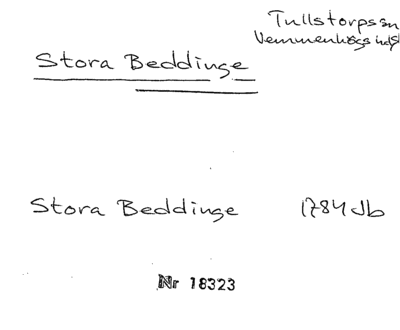 Tullstorps sn
Vemmenhögs hd
Stora Beddinge
Stora Beddinge 1784 Jb
Nr 18323